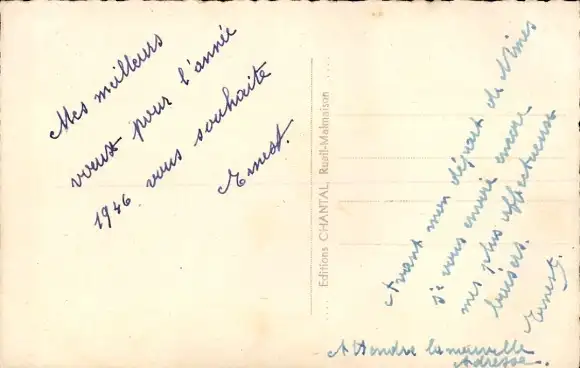 Mes meilleurs
voeux pour l'année
1946 vous souhaite
Ernest.
Editions CHANTAL, Rueil-Malmaison
Avant mon départ de Nîmes
je vous envoie encore
mes plus affectueuse
baisers.
Ernest.
Attendre la nouvelle
Adresse.